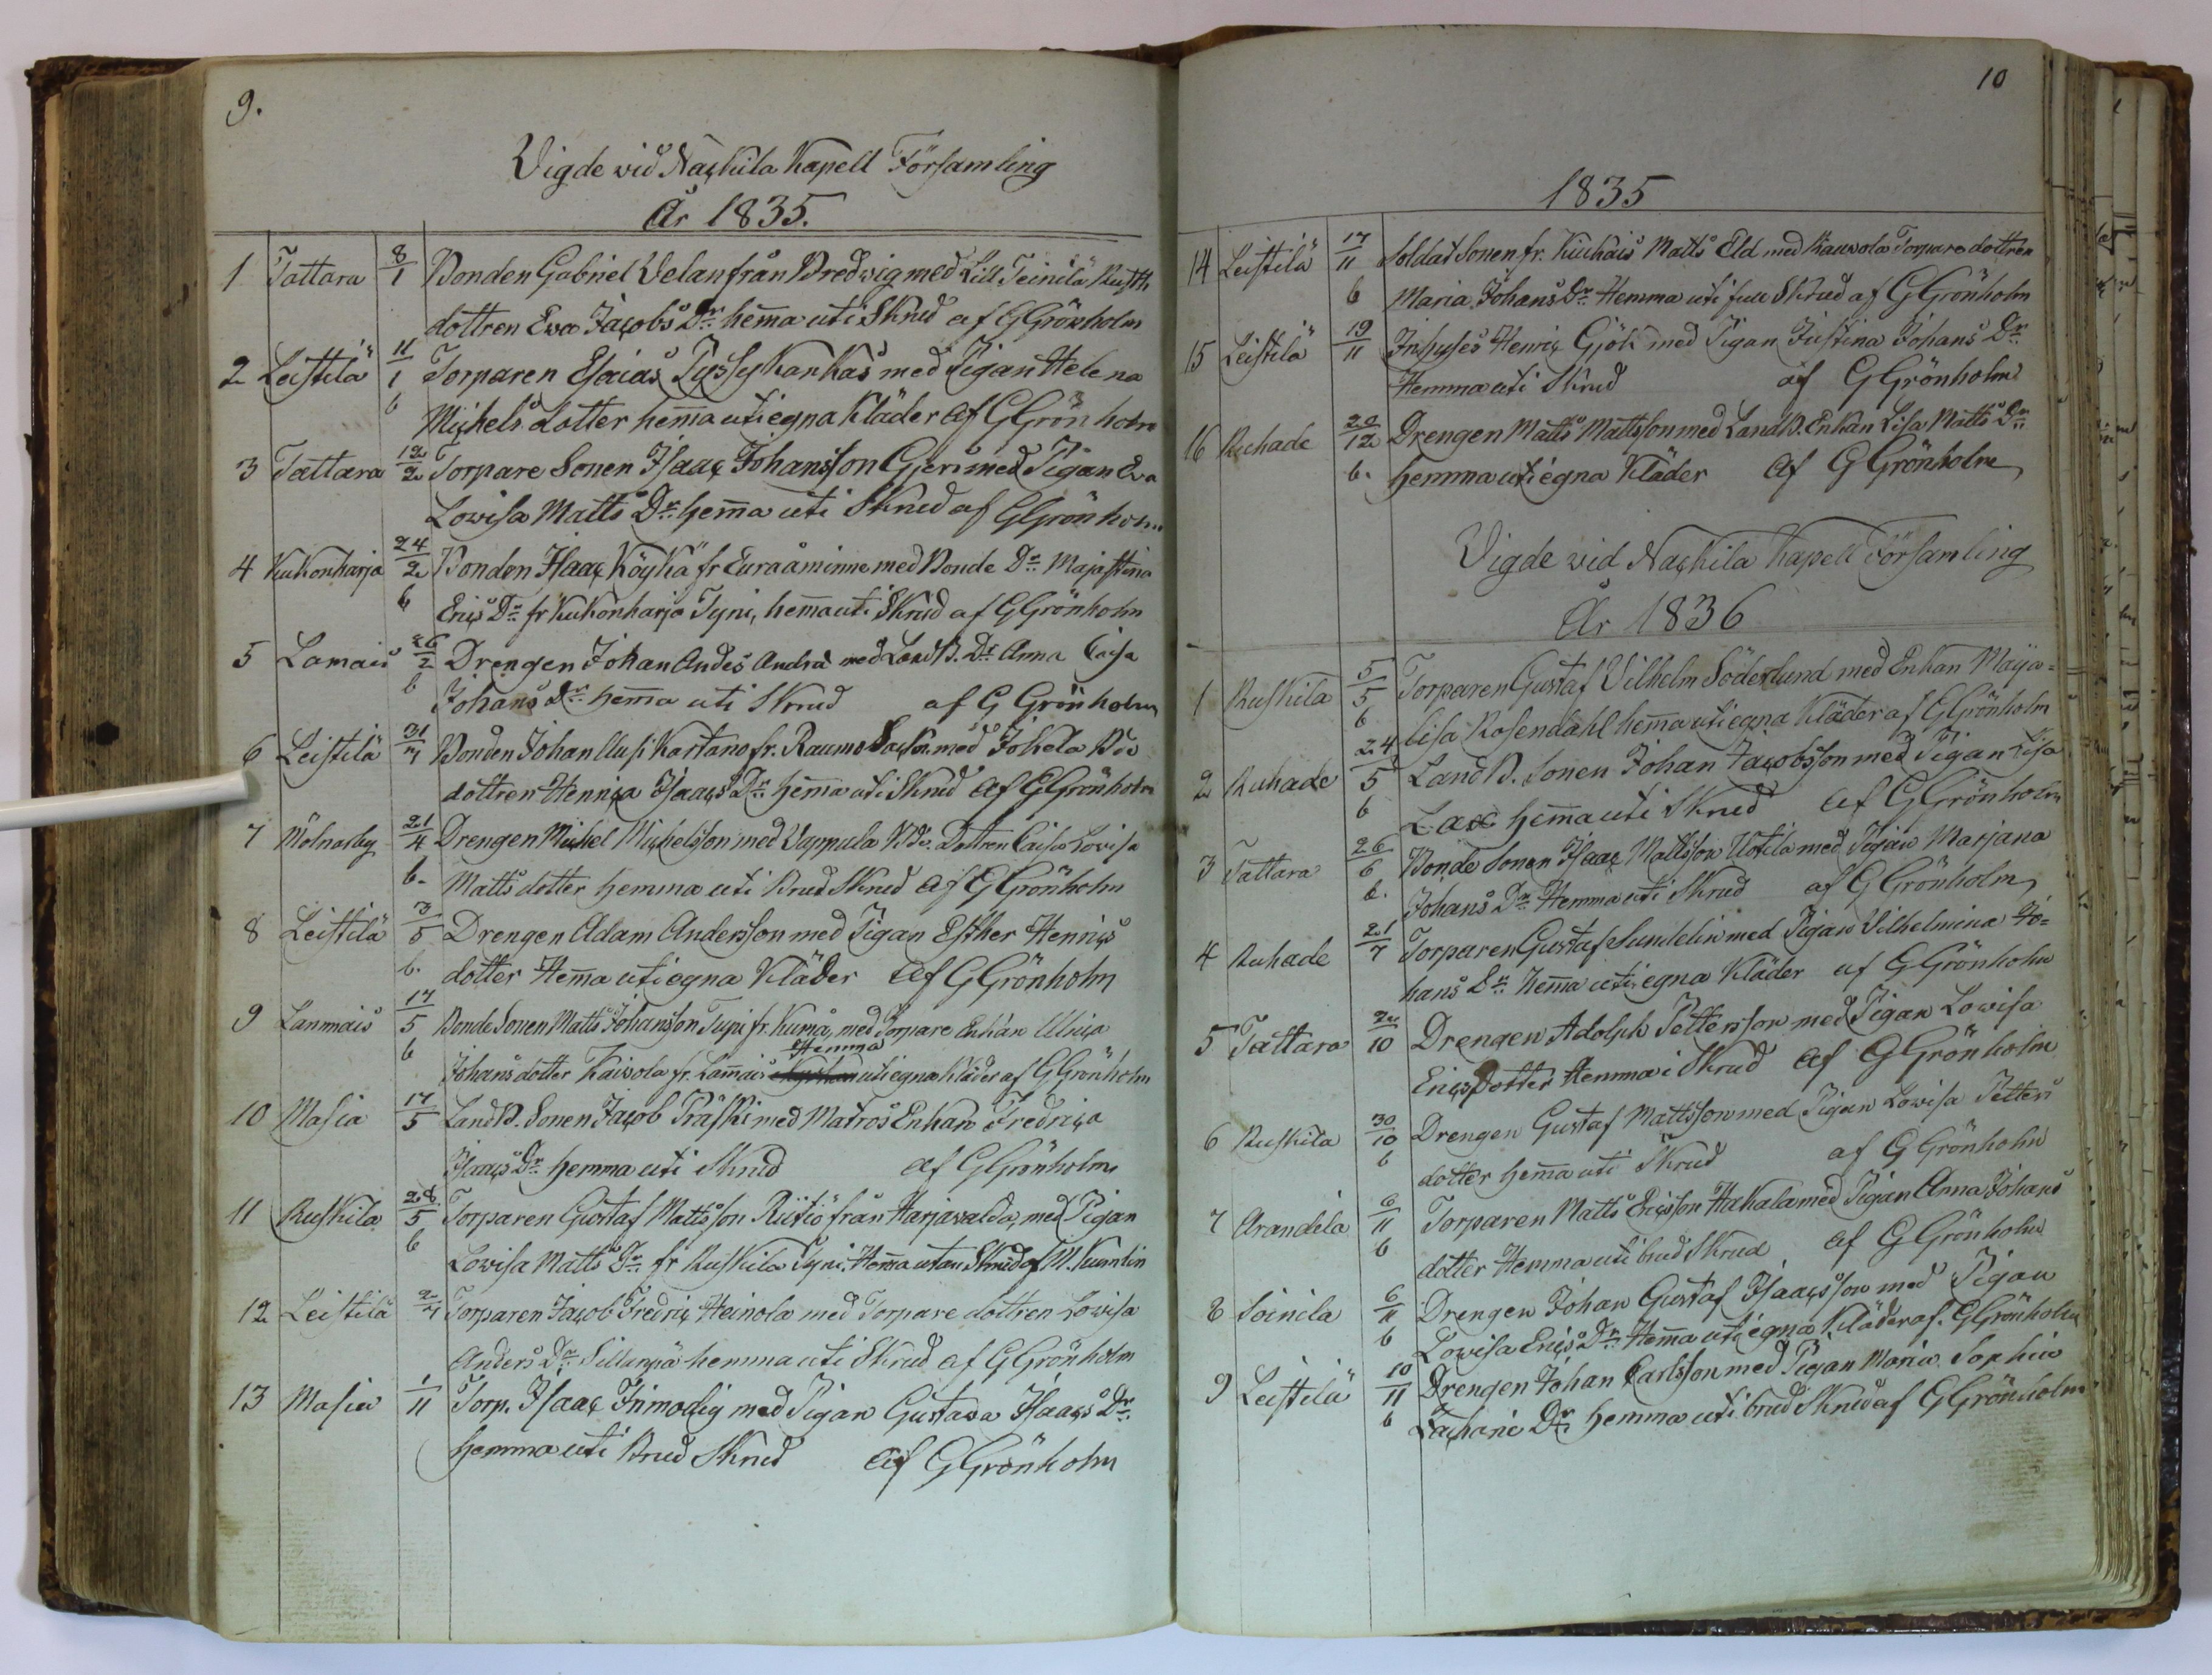 9.
Vigde vid Nackila Kapell Församling
År 1835.
1 Tattara 8/1 Bonden Gabriel Velan från Bredwig med Lill Teinilä Rusth.
dottren Eva Jacobs Dr. hem̄a uti Skrud af G Grönholm
2 Leistilä 11/1 Torparen Esaias Pyssykankas med Pigan Helena
6 Michels dotter hem̄a uti egna Kläder af G Grönholm
3 Tattara 12/2 Torpare Sonen Isaac Johansson Gjers med Pigan Eva
Lowisa Matts Dr. hem̄a uti Skrud af G Grönholm
4 Kukonharja 24/2 Bonden Isaac Köykä fr Euraåminne med Bonde Dr. Majastina
6 Erics Dr. fr Kukonharja Tyni, hem̄a uti Skrud af G Grönholm
5 Lamais 26/2 Drengen Johan Andes Andrä med Land B. Dr. Anna Caisa
6 Johans Dr. hem̄a uti Skrud af G Grönholm
6 Leistilä 31/3 Bonden Johan Uusi Kartano fr. Raumo med Johela Bde
dottren Henrica Isaacs Dr. hem̄a uti Skrud af G Grönholm
7 Molnarby 21/4 Drengen Michel Michelsson med Vappula Bde. Dottren Caisa Lovisa
6. Matts dotter hemma uti Brud Skrud af G Grönholm
8 Leistilä 3/5 Drengen Adam Andersson med Pigan Esther Henrics
6. dotter Hem̄a uti egna Kläder af G Grönholm
9 Lammais 17/5 Bonde Sonen Matts Johansson Tupi fr. Kumå, med Torpare Enkan Ulrica
Hemma
6 Johans dotter Kaivola fr. Lam̄ais uti egna Kläder af G Grönholm
10 Masia 17/5 Land B. Sonen Jacob Präski med Matros Enkan Fredrica
Isaacs Dr. hemma uti Skrud af G Grönholm
11 Ruskila 28/5 Torparen Gustaf Mattsson Riitiö från Harjavalda, med Pigan
6 Lowisa Matts Dr. fr Ruskila Tyni. Hem̄a utan Skrud af M. Kumlin
12 Leistilä 2/7 Torparen Jacob Fredric Heinola med Torpare dottren Lowisa
Anders Dr. Sillanpä hemma uti Skrud af G Grönholm
13 Masia 1/11 Torp. Isaac Frimodig med Pigan Gustava Isaacs Dr.
hemma uti Brud Skrud af G Grönholm
10
1835
14 Leistilä 17/11 Soldat Sonen fr. Kiukais Matts Eld med Kauvola Torpare dottren
6 Maria Johans Dr. Hemma uti full Skrud af G Grönholm
15 Leistilä 19/11 Inhyses Henric Gjök med Pigan Justina Johans Dr.
Hemma uti Skrud af G Grönholm
16 Ruhade 20/12 Drengen Matts Mattsson med Land B. Enkan Lisa Matts Dr.
6. hemma uti egna Kläder af G Grönholm
Vigde vid Nackila Kapell Församling
År 1836
1 Ruskila 5/5 Torparen Gustaf Vilhelm Söderlund med Enkan Maija=
6 lisa Rosendahl hem̄a uti egna Kläder af G Grönholm
2 Ruhade 24/5 Land B. Sonen Johan Jacobsson med Pigan Lisa
6 Lax hem̄a uti Skrud af G Grönholm
3 Tattara 26/6 Bonde Sonen Isaac Mattsson Uotila med Pigan Marjana
6. Johans Dr. Hemma uti Skrud af G Grönholm
4 Ruhade 21/7 Torparen Gustaf Sundelin med Pigan Vilhelmina Jo=
hans Dr. hem̄a uti egna Kläder af G Grönholm
5 Tattara 2/10 Drengen Adolph Pettersson med Pigan Lowisa
Ericsdotter Hemma i Skrud af G Grönholm
6 Ruskila 30/10 Drengen Gustaf Mattsson med Pigan Lowisa Petters
6 dotter hem̄a uti Skrud af G Grönholm
7 Arandila 6/11 Torparen Matts Ericsson Hakala med Pigan Anna Johans
6 dotter Hemma uti brud Skrud af G Grönholm
8 Soinila 6/11 Drengen Johan Gustaf Isaacsson med Pigan
6 Lowisa Erics Dr. Hem̄a uti egna Kläder af. G Grönholm
9 Leistilä 10/11 Drengen Johan Carlsson med Pigan Maria Sophia
6 Zachari Dr. hemma uti brud Skrud af G Grönholm